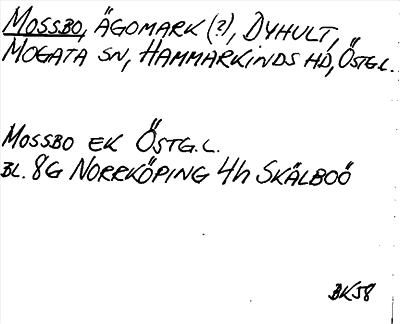 MOSSBO, ÄGOMARK (?), DYHULT,
MOGATA SN, HAMMARKINDS HD, ÖSTG.L.
MOSSBO EK ÖSTG.L.
BL. 8G NORRKÖPING 4h SKÄLBOÖ
BK58